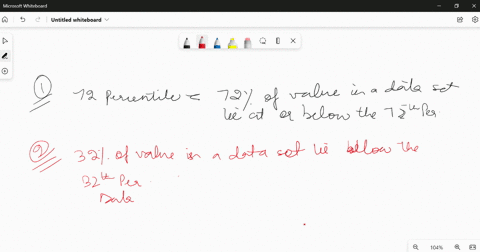 Microsoft Whiteboard
Untitled whiteboard
① 72 Percentile = 72% of value in a data set
lie at or below the 72th Per
② 32% of value in a data set lie below the
32th Per
Data
104%